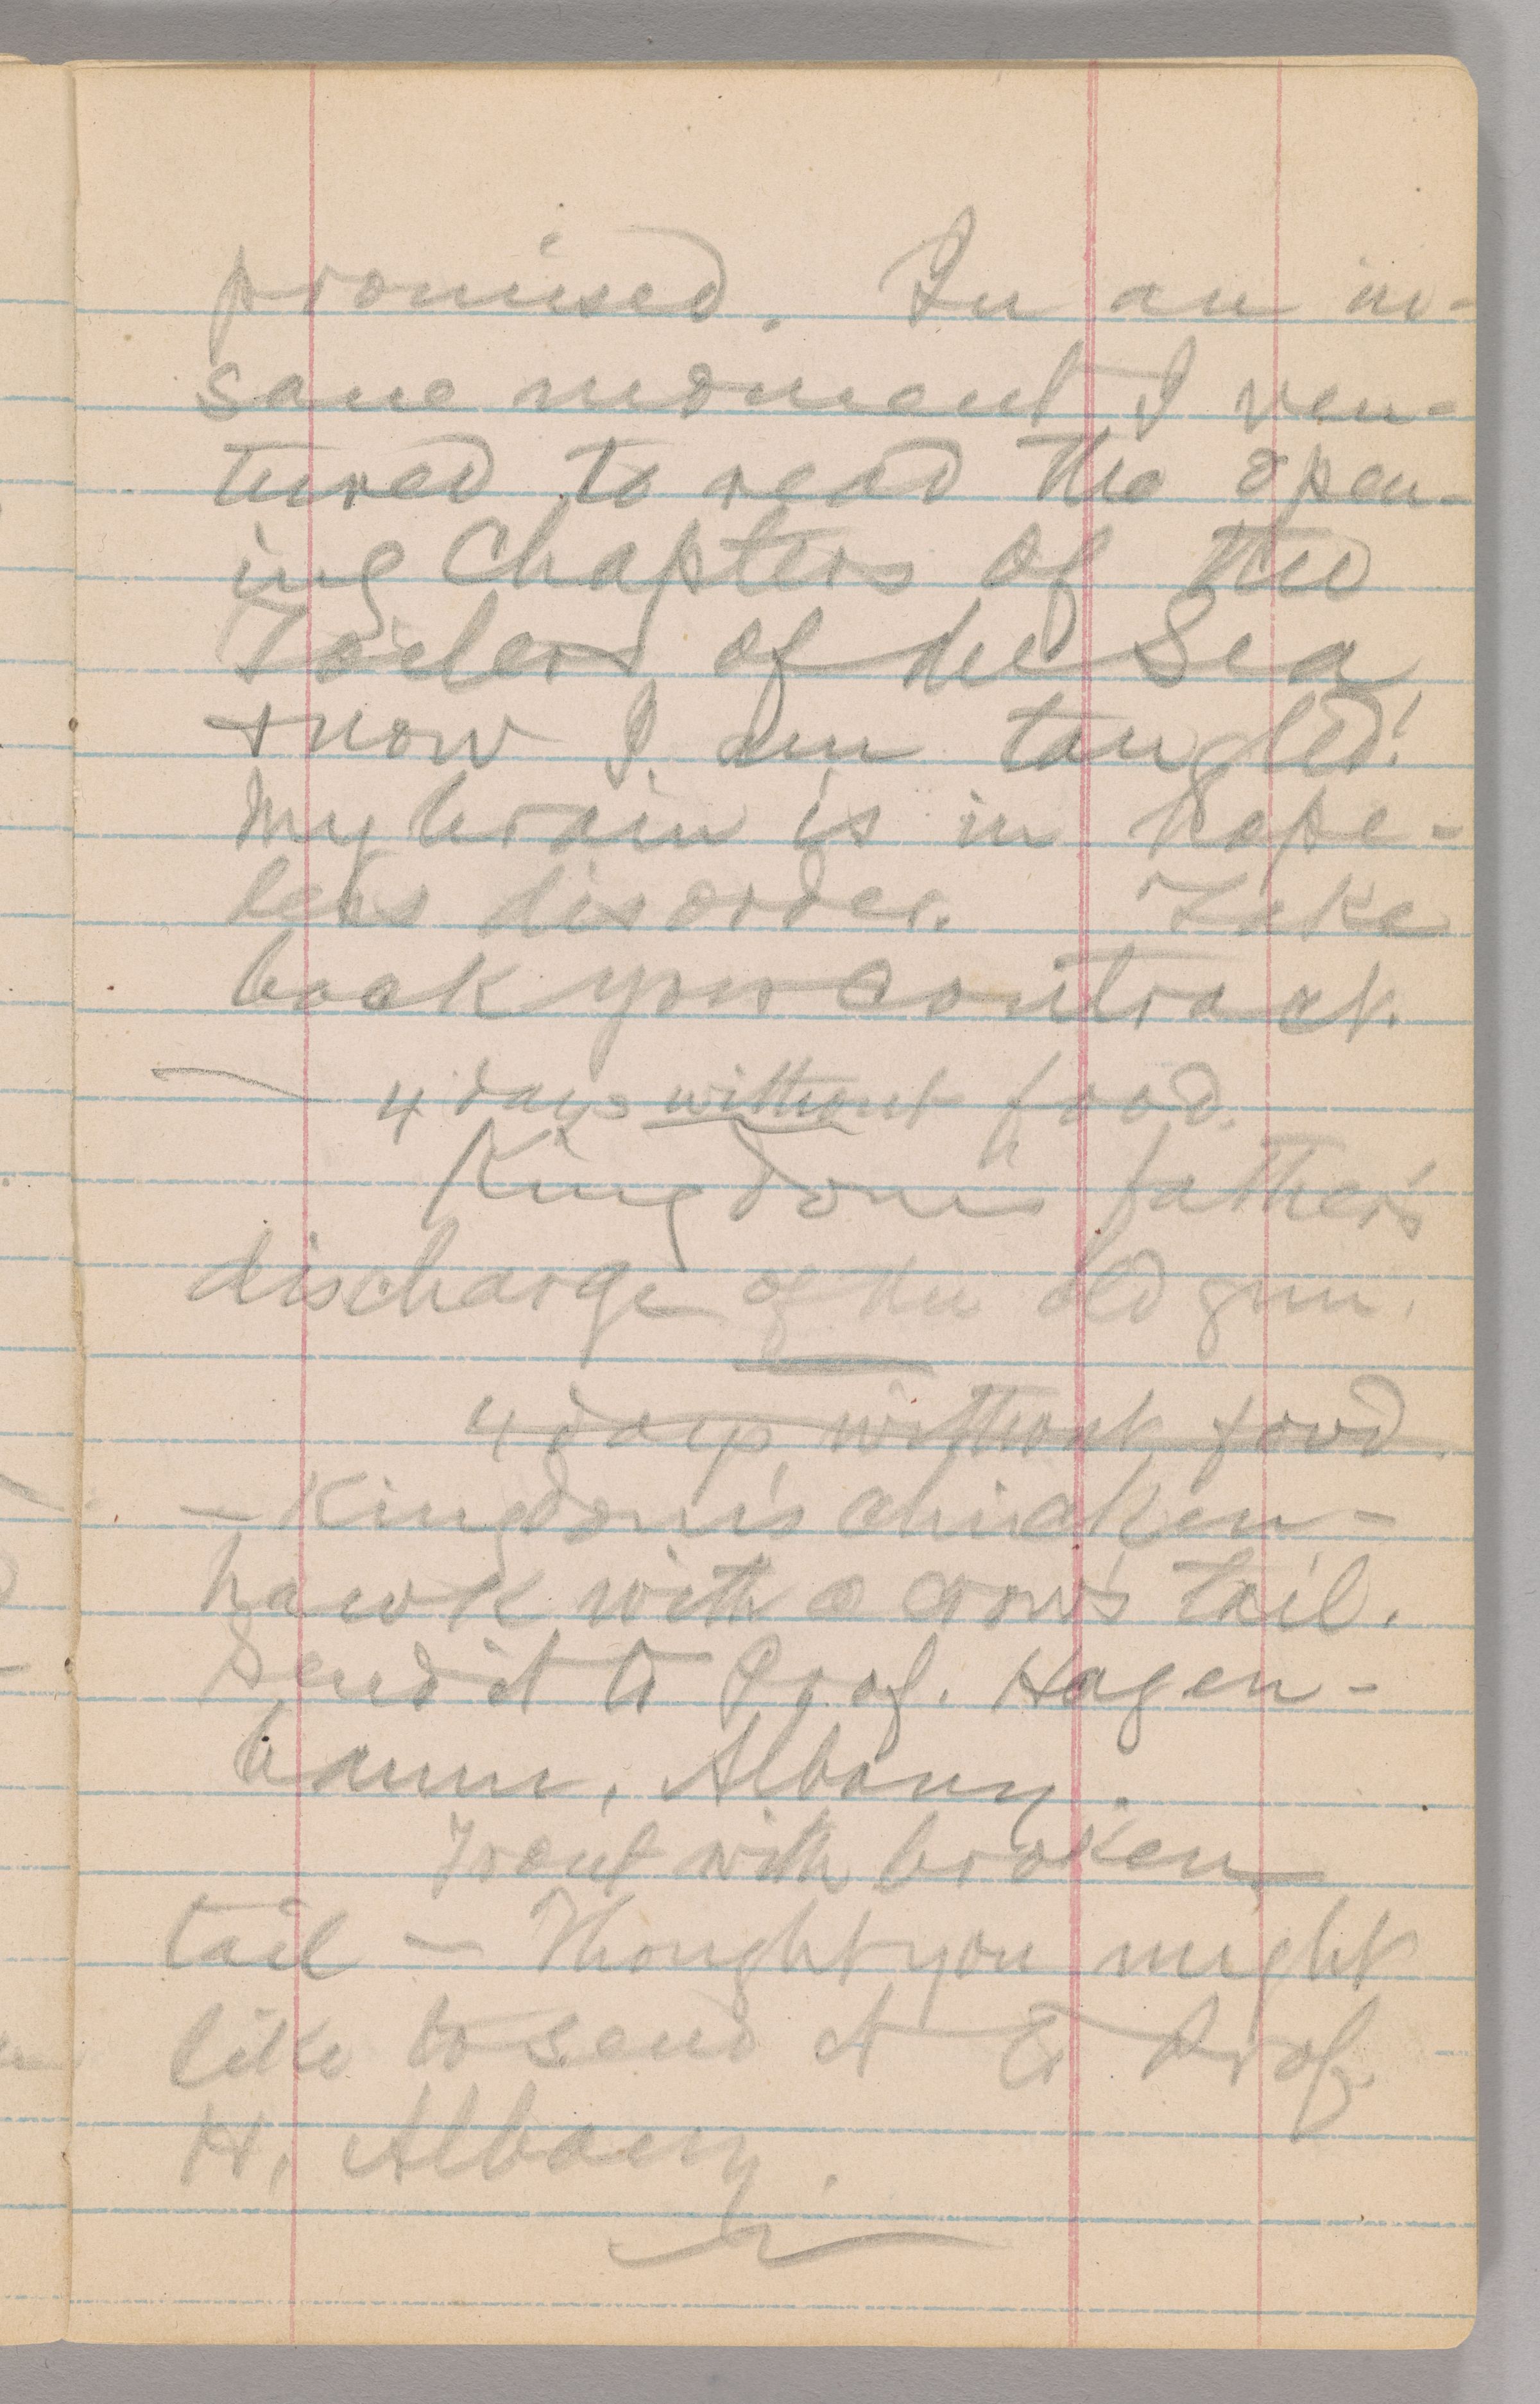 promised. In an in-
sane moment I ven-
tured to read the open-
ing Chapters of the
Toilers of the Sea,
& now I am tangled!
My brain is in hope-
less disorder. Take
back your contract.
— 4 days without food.
Kingdon's father's
discharge of the old gun.
4 days without food.
— Kingdon's chicken-
hawk with a crow's tail.
Send it to Prof. Hagen-
baum, Albany.
Trout with broken
tail — Thought you might
like to send it to Prof.
H, Albany.